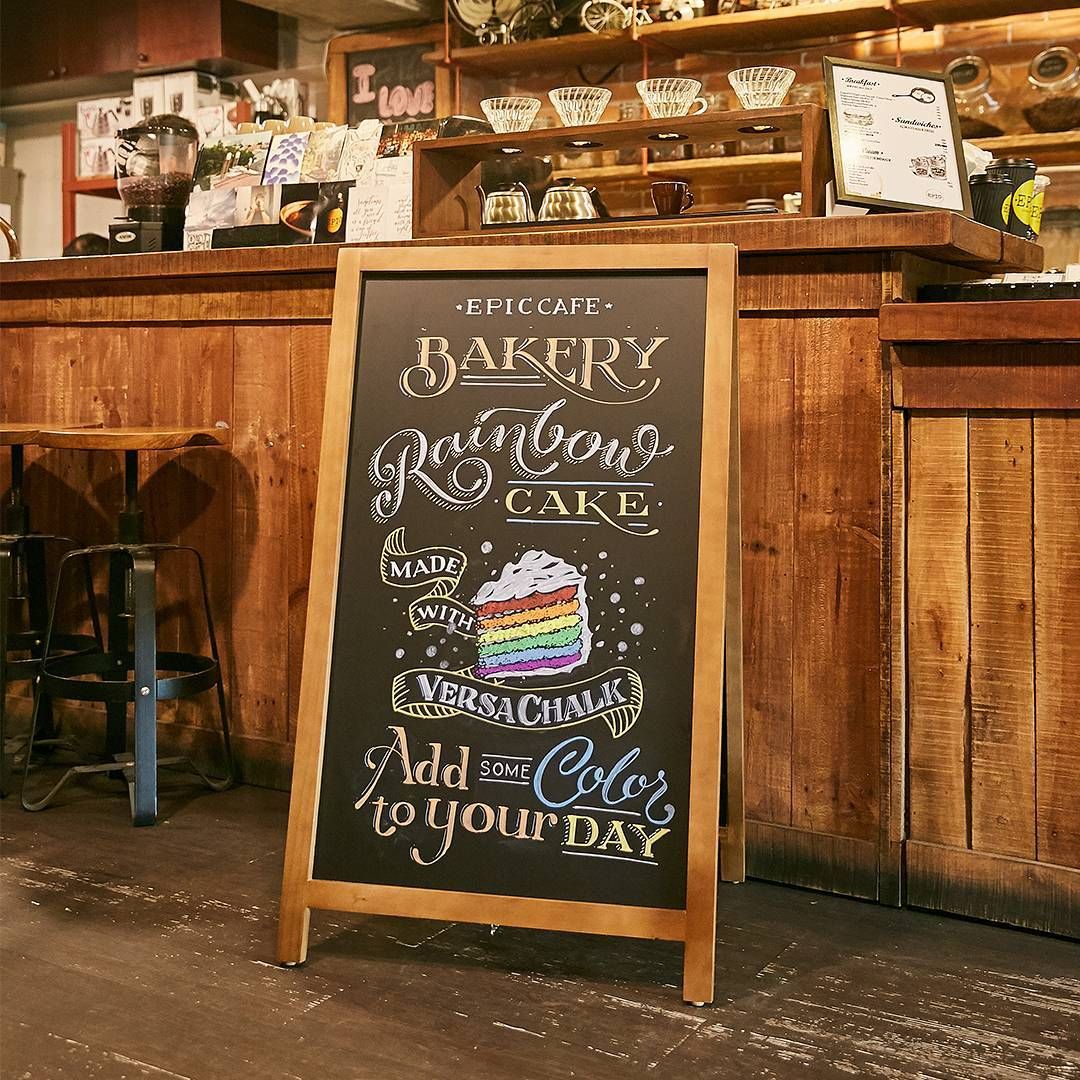 I
LOVE
Breakfast
Sandwiches
EPIC CAFE
BAKERY
Rainbow
CAKE
MADE
WITH
VERSACHALK
Add SOME Color
to your DAY